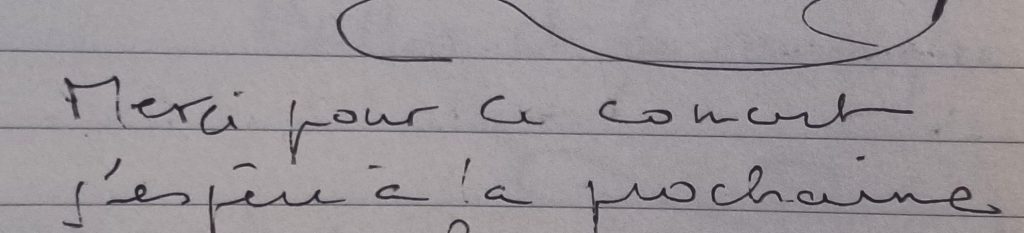 Merci pour ce concert
j'espère à la prochaine